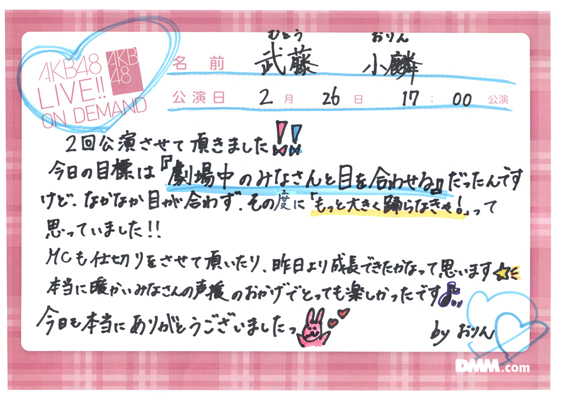 AKB48
LIVE!!
ON DEMAND
AKB
48
むとう おりん
名前 武藤 小麟
公演日 2月 26日 17:00 公演
2回公演させて頂きました!!
今日の目標は『劇場中のみなさんと目を合わせる』だったんです
けど、なかなか目が合わず、その度に「もっと大きく踊らなきゃ!」って
思っていました!!
MCも仕切りをさせて頂いたり、昨日より成長できたかなって思います
本当に暖かいみなさんの声援のおかげでとっても楽しかったです
今日も本当にありがとうございましたっ
by おりん
DMM.com